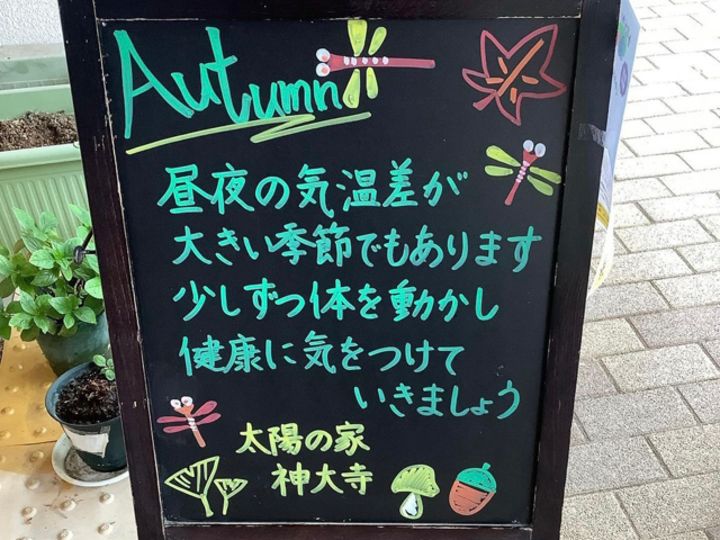 Autumn
昼夜の気温差が
大きい季節でもあります
少しずつ体を動かし
健康に気をつけて
いきましょう
太陽の家
神大寺